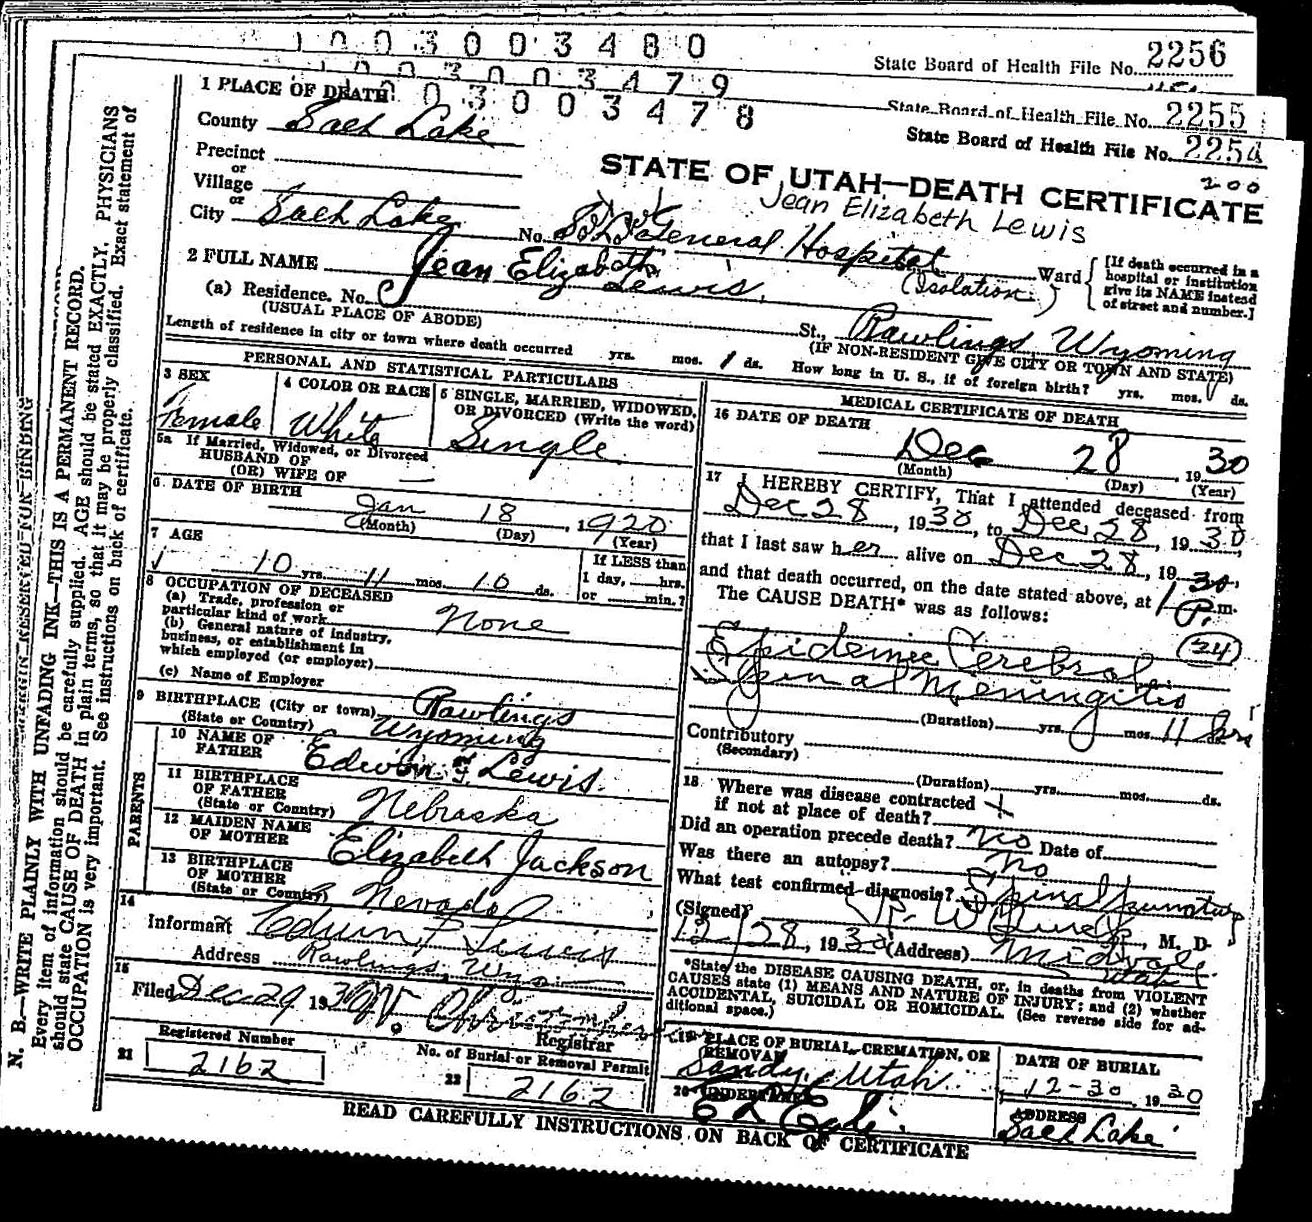 1 0 0 3 0 0 3 4 8 0
State Board of Health File No. 2256
0 0 3 0 0 3 4 7 9
State Board of Health File No. 2255
0 3 0 0 3 4 7 8
State Board of Health File No. 2254
200
1 PLACE OF DEATH
STATE OF UTAH—DEATH CERTIFICATE
Jean Elizabeth Lewis
County Salt Lake
Precinct
or
Village
or
City Salt Lake No. General Hospital Ward
(Isolation)
[If death occurred in a
hospital or institution
give its NAME instead
of street and number.]
2 FULL NAME Jean Elizabeth Lewis.
(a) Residence. No. St., Rawlings Wyoming
(USUAL PLACE OF ABODE) (IF NON-RESIDENT GIVE CITY OR TOWN AND STATE)
Length of residence in city or town where death occurred yrs. mos. 1 ds. How long in U. S., if of foreign birth? yrs. mos. ds.
PERSONAL AND STATISTICAL PARTICULARS
3 SEX
Female
4 COLOR OR RACE
White
5 SINGLE, MARRIED, WIDOWED,
OR DIVORCED (Write the word)
Single
5a If Married, Widowed, or Divorced
HUSBAND OF
(OR) WIFE OF
6 DATE OF BIRTH
Jan 18, 1920
(Month) (Day) (Year)
7 AGE
10 yrs. 11 mos. 10 ds.
If LESS than
1 day, hrs.
or min.?
8 OCCUPATION OF DECEASED
(a) Trade, profession or
particular kind of work None
(b) General nature of industry,
business, or establishment in
which employed (or employer)
(c) Name of Employer
9 BIRTHPLACE (City or town) Rawlings
(State or Country) Wyoming
PARENTS
10 NAME OF
FATHER Edwin F Lewis.
11 BIRTHPLACE
OF FATHER
(State or Country) Nebraska
12 MAIDEN NAME
OF MOTHER Elizabeth Jackson
13 BIRTHPLACE
OF MOTHER
(State or Country) Nevada
14
Informant Edwin F Lewis
Address Rawlings, Wyo.
15
Filed Dec 29 1930
Registrar
Registered Number
21 2162
No. of Burial or Removal Permit
22 2162
MEDICAL CERTIFICATE OF DEATH
16 DATE OF DEATH
Dec 28 1930
(Month) (Day) (Year)
17 I HEREBY CERTIFY, That I attended deceased from
Dec 28, 1930, to Dec 28, 1930,
that I last saw her alive on Dec 28, 1930,
and that death occurred, on the date stated above, at 1 P. m.
The CAUSE DEATH* was as follows:
Epidemic Cerebral (24)
Spinal Meningitis
(Duration) yrs. mos. 11 ds. hrs
Contributory
(Secondary)
(Duration) yrs. mos. ds.
18 Where was disease contracted
if not at place of death?
Did an operation precede death? No Date of
Was there an autopsy? No
What test confirmed diagnosis? Spinal puncture
(Signed) M. D.
12/28, 1930 (Address) Midvale Utah
*State the DISEASE CAUSING DEATH, or, in deaths from VIOLENT
CAUSES state (1) MEANS AND NATURE OF INJURY; and (2) whether
ACCIDENTAL, SUICIDAL OR HOMICIDAL. (See reverse side for ad-
ditional space.)
19 PLACE OF BURIAL, CREMATION, OR
REMOVAL
Sandy, Utah
DATE OF BURIAL
12-30 1930
20 UNDERTAKER
ADDRESS
Salt Lake
READ CAREFULLY INSTRUCTIONS ON BACK OF CERTIFICATE
MARGIN RESERVED FOR BINDING
N. B.—WRITE PLAINLY WITH UNFADING INK—THIS IS A PERMANENT RECORD.
Every item of information should be carefully supplied. AGE should be stated EXACTLY. PHYSICIANS
should state CAUSE OF DEATH in plain terms, so that it may be properly classified. Exact statement of
OCCUPATION is very important. See instructions on back of certificate.